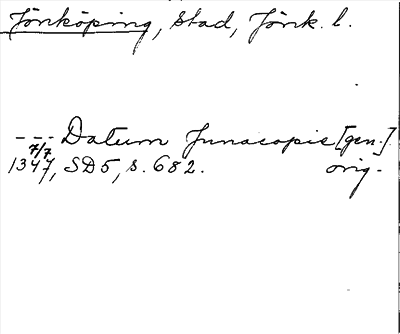 Jönköping, stad, Jönk. l.
--- Datum Junacopie [gen.]
7/7
1347, SD5, s. 682. orig.